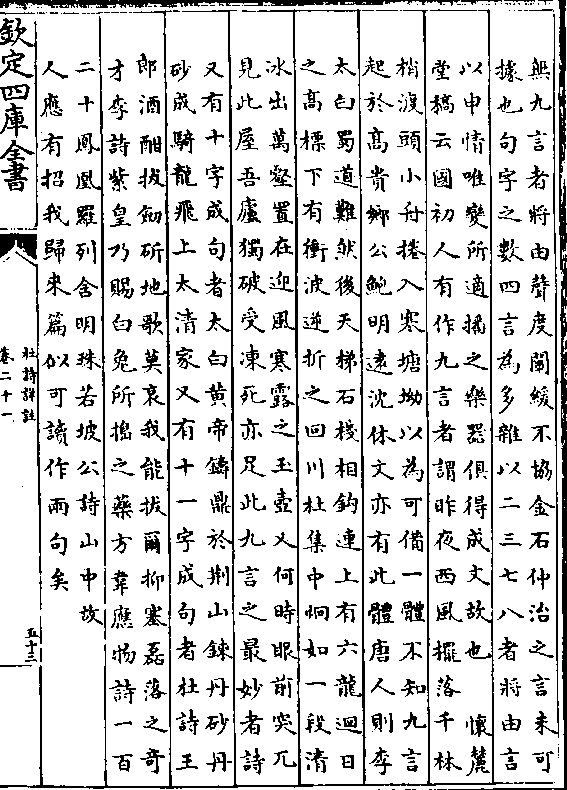 無九言者將由聲度闡緩不協金石仲治之言未可
據也句字之數四言為多雜以二三七八者將由言
以申情唯變所適播之樂器俱得成文故也　懷麓
堂稿云國初人有作九言者謂昨夜西風擺落千林
梢渡頭小舟捲入寒塘坳以為可備一體不知九言
起於高貴鄉公鮑明遠沈休文亦有此體唐人則李
太白蜀道難然後天梯石棧相鈎連上有六龍迴日
之高標下有衝波逆折之回川杜集中炯如一段清
冰出萬壑置在迎風寒露之玉壺又何時眼前突兀
見此屋吾廬獨破受凍死亦足此九言之最妙者詩
又有十字成句者太白黃帝鑄鼎於荆山鍊丹砂丹
砂成騎龍飛上太清家又有十一字成句者杜詩王
郎酒酣拔劒斫地歌莫哀我能拔爾抑塞磊落之奇
才李詩紫皇乃賜白兔所搗之藥方韋應物詩一百
二十鳳凰羅列含明珠若坡公詩山中故
人應有招我歸來篇似可讀作兩句矣
欽定四庫全書
杜詩詳註
卷二十一
五十三